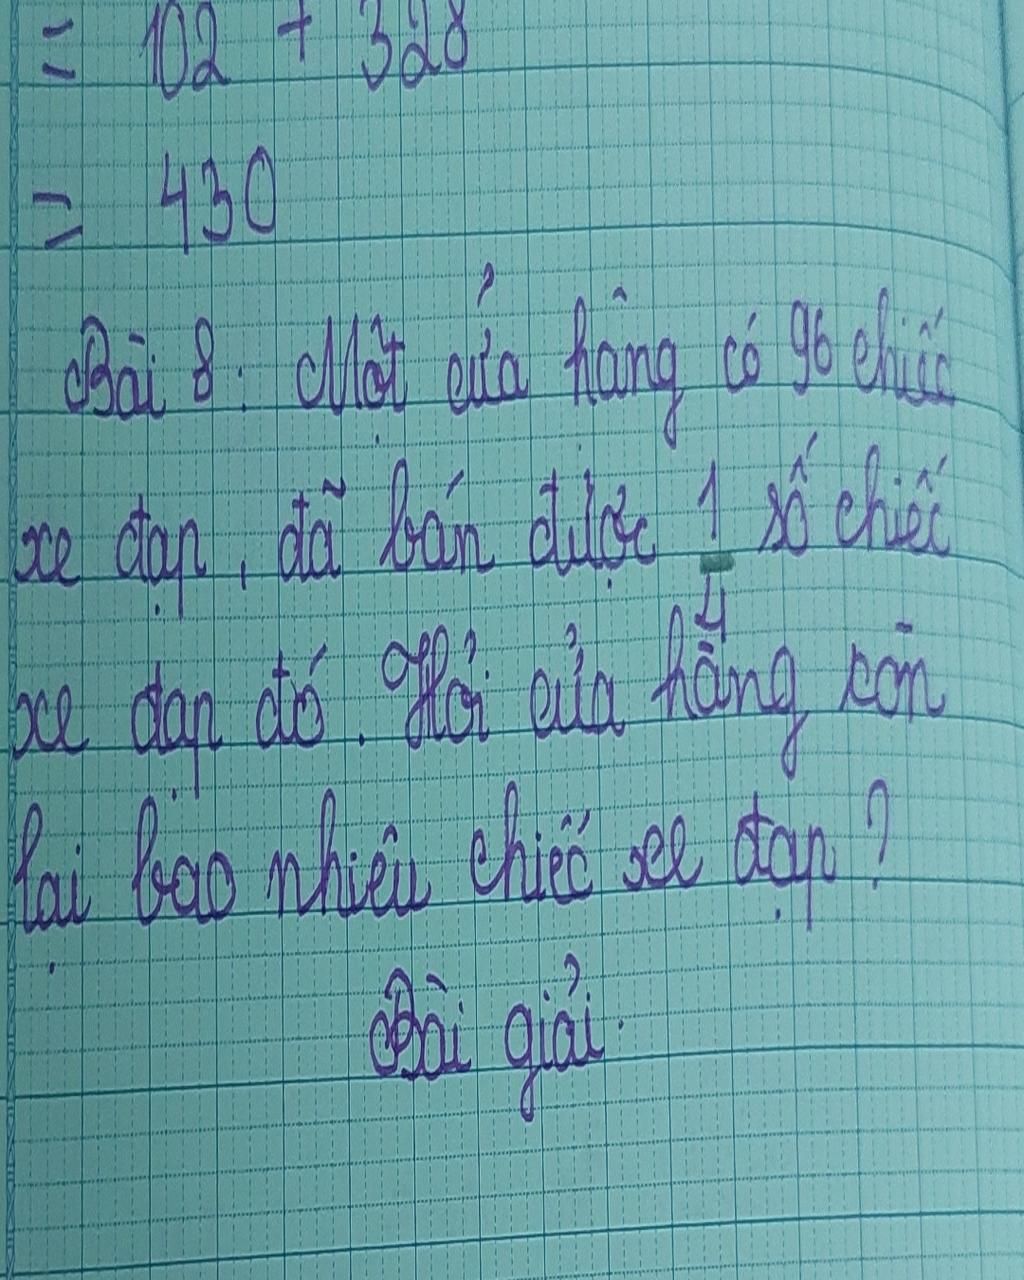 = 102 + 328
= 430
Bài 8: Một cửa hâng có 96 chiếc
xe đạp, đã bán được 1/4 số chiếc
xe đạp đó. Hỏi cửa hãng còn
lại bao nhiêu chiếc xe đạp?
Bài giải.